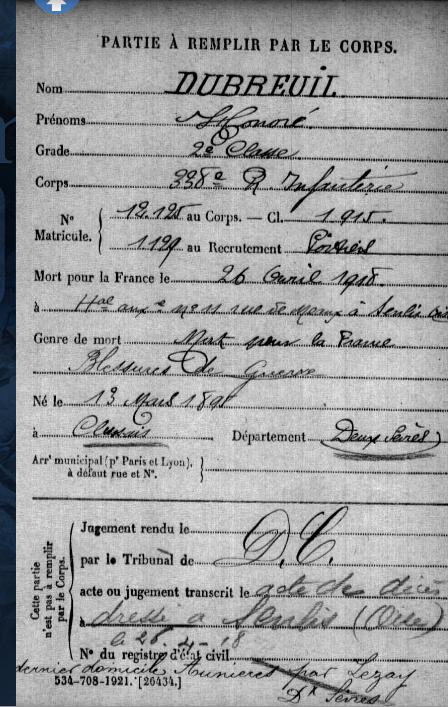 PARTIE À REMPLIR PAR LE CORPS.
Nom DUBREUIL
Prénoms Honoré
Grade 2e Classe
Corps 338e R. Infanterie
N° Matricule. { 12.125 au Corps. — Cl. 1915.
1129 au Recrutement Poitiers
Mort pour la France le 26 Avril 1918
à Hal auxre n° 11 rue de Meaux à Senlis Oise
Genre de mort Mort pour la France
Blessures de Guerre
Né le 13 Mars 189
à Clussais Département Deux Sèvres
Arrt municipal (pr Paris et Lyon), à défaut rue et N°. }
Cette partie n'est pas à remplir par le Corps.
Jugement rendu le
par le Tribunal de D. C.
acte ou jugement transcrit le acte de décès
à dressé à Senlis (Oise)
le 26-4-18
N° du registre d'état civil
dernier domicile par Lezay
534-708-1921. [26434.] Dx Sèvres